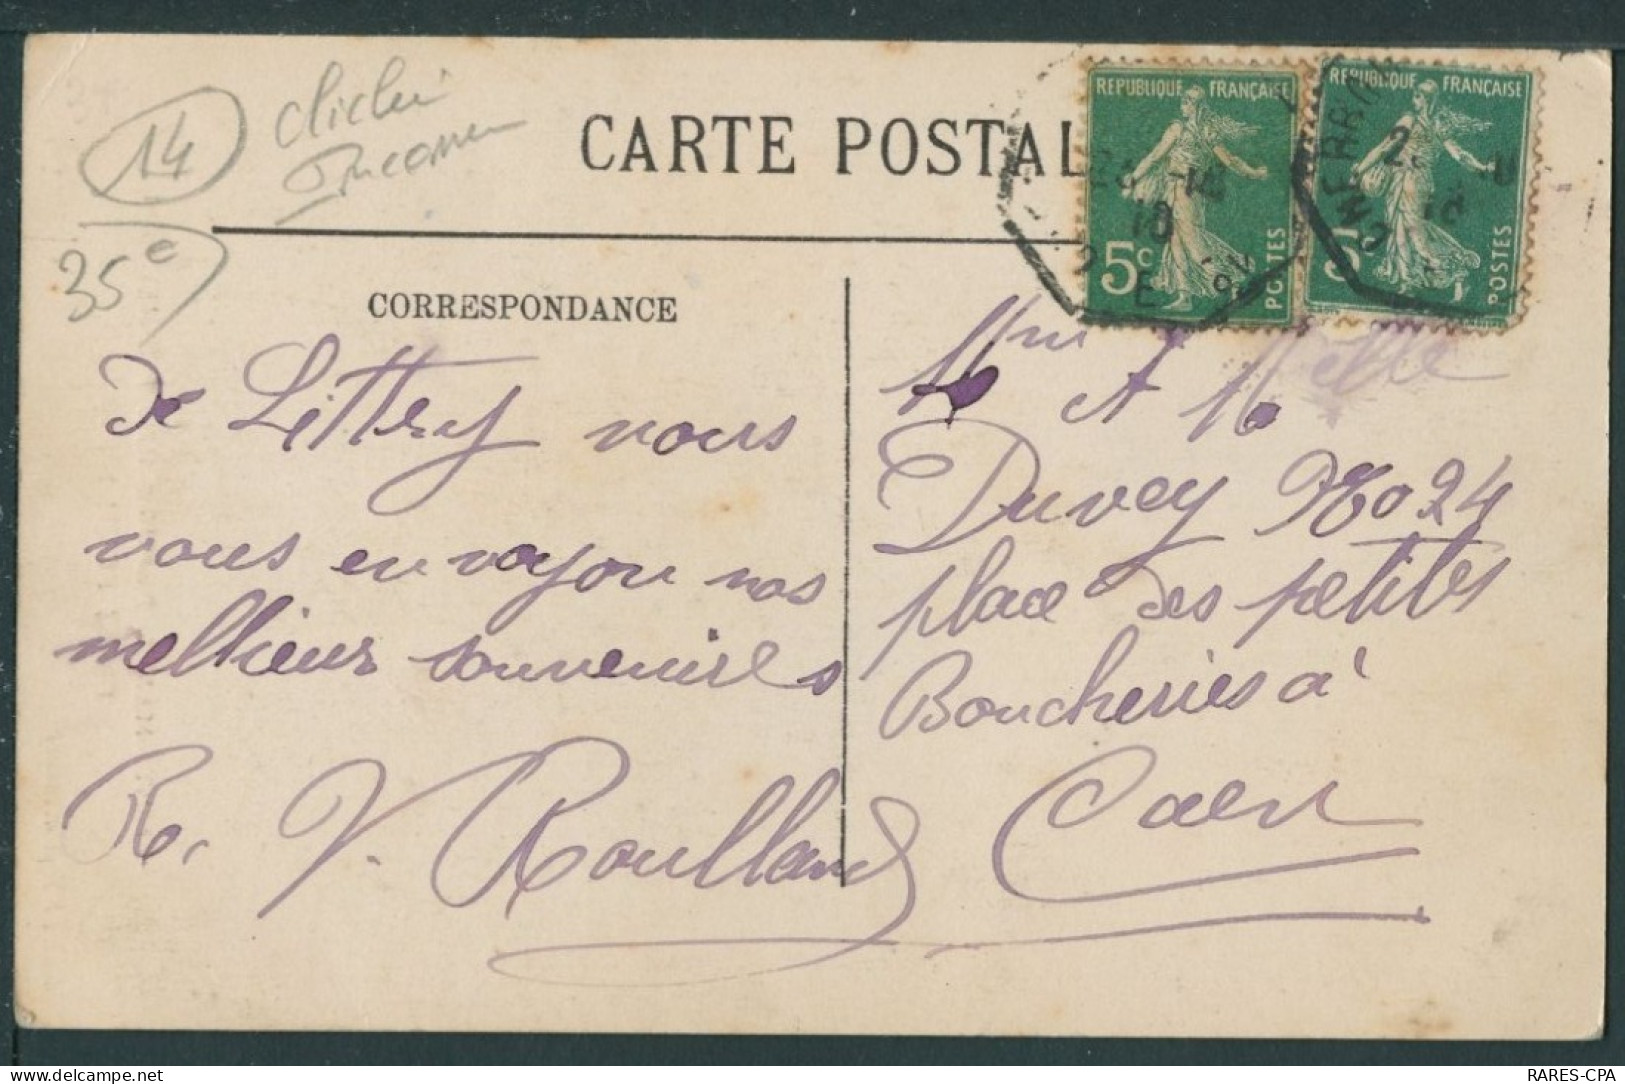 14
cliché
35€
CARTE POSTAL
REPUBLIQUE FRANÇAISE
5c
POSTES
REPUBLIQUE FRANÇAISE
5c
POSTES
CORRESPONDANCE
de Littry nous
vous envoyon nos
mellieur souvenires
R. V. Roulland
Mme et Melle
Duvey No 24
place des petites
Boucheries à
Caen
RARES-CPA